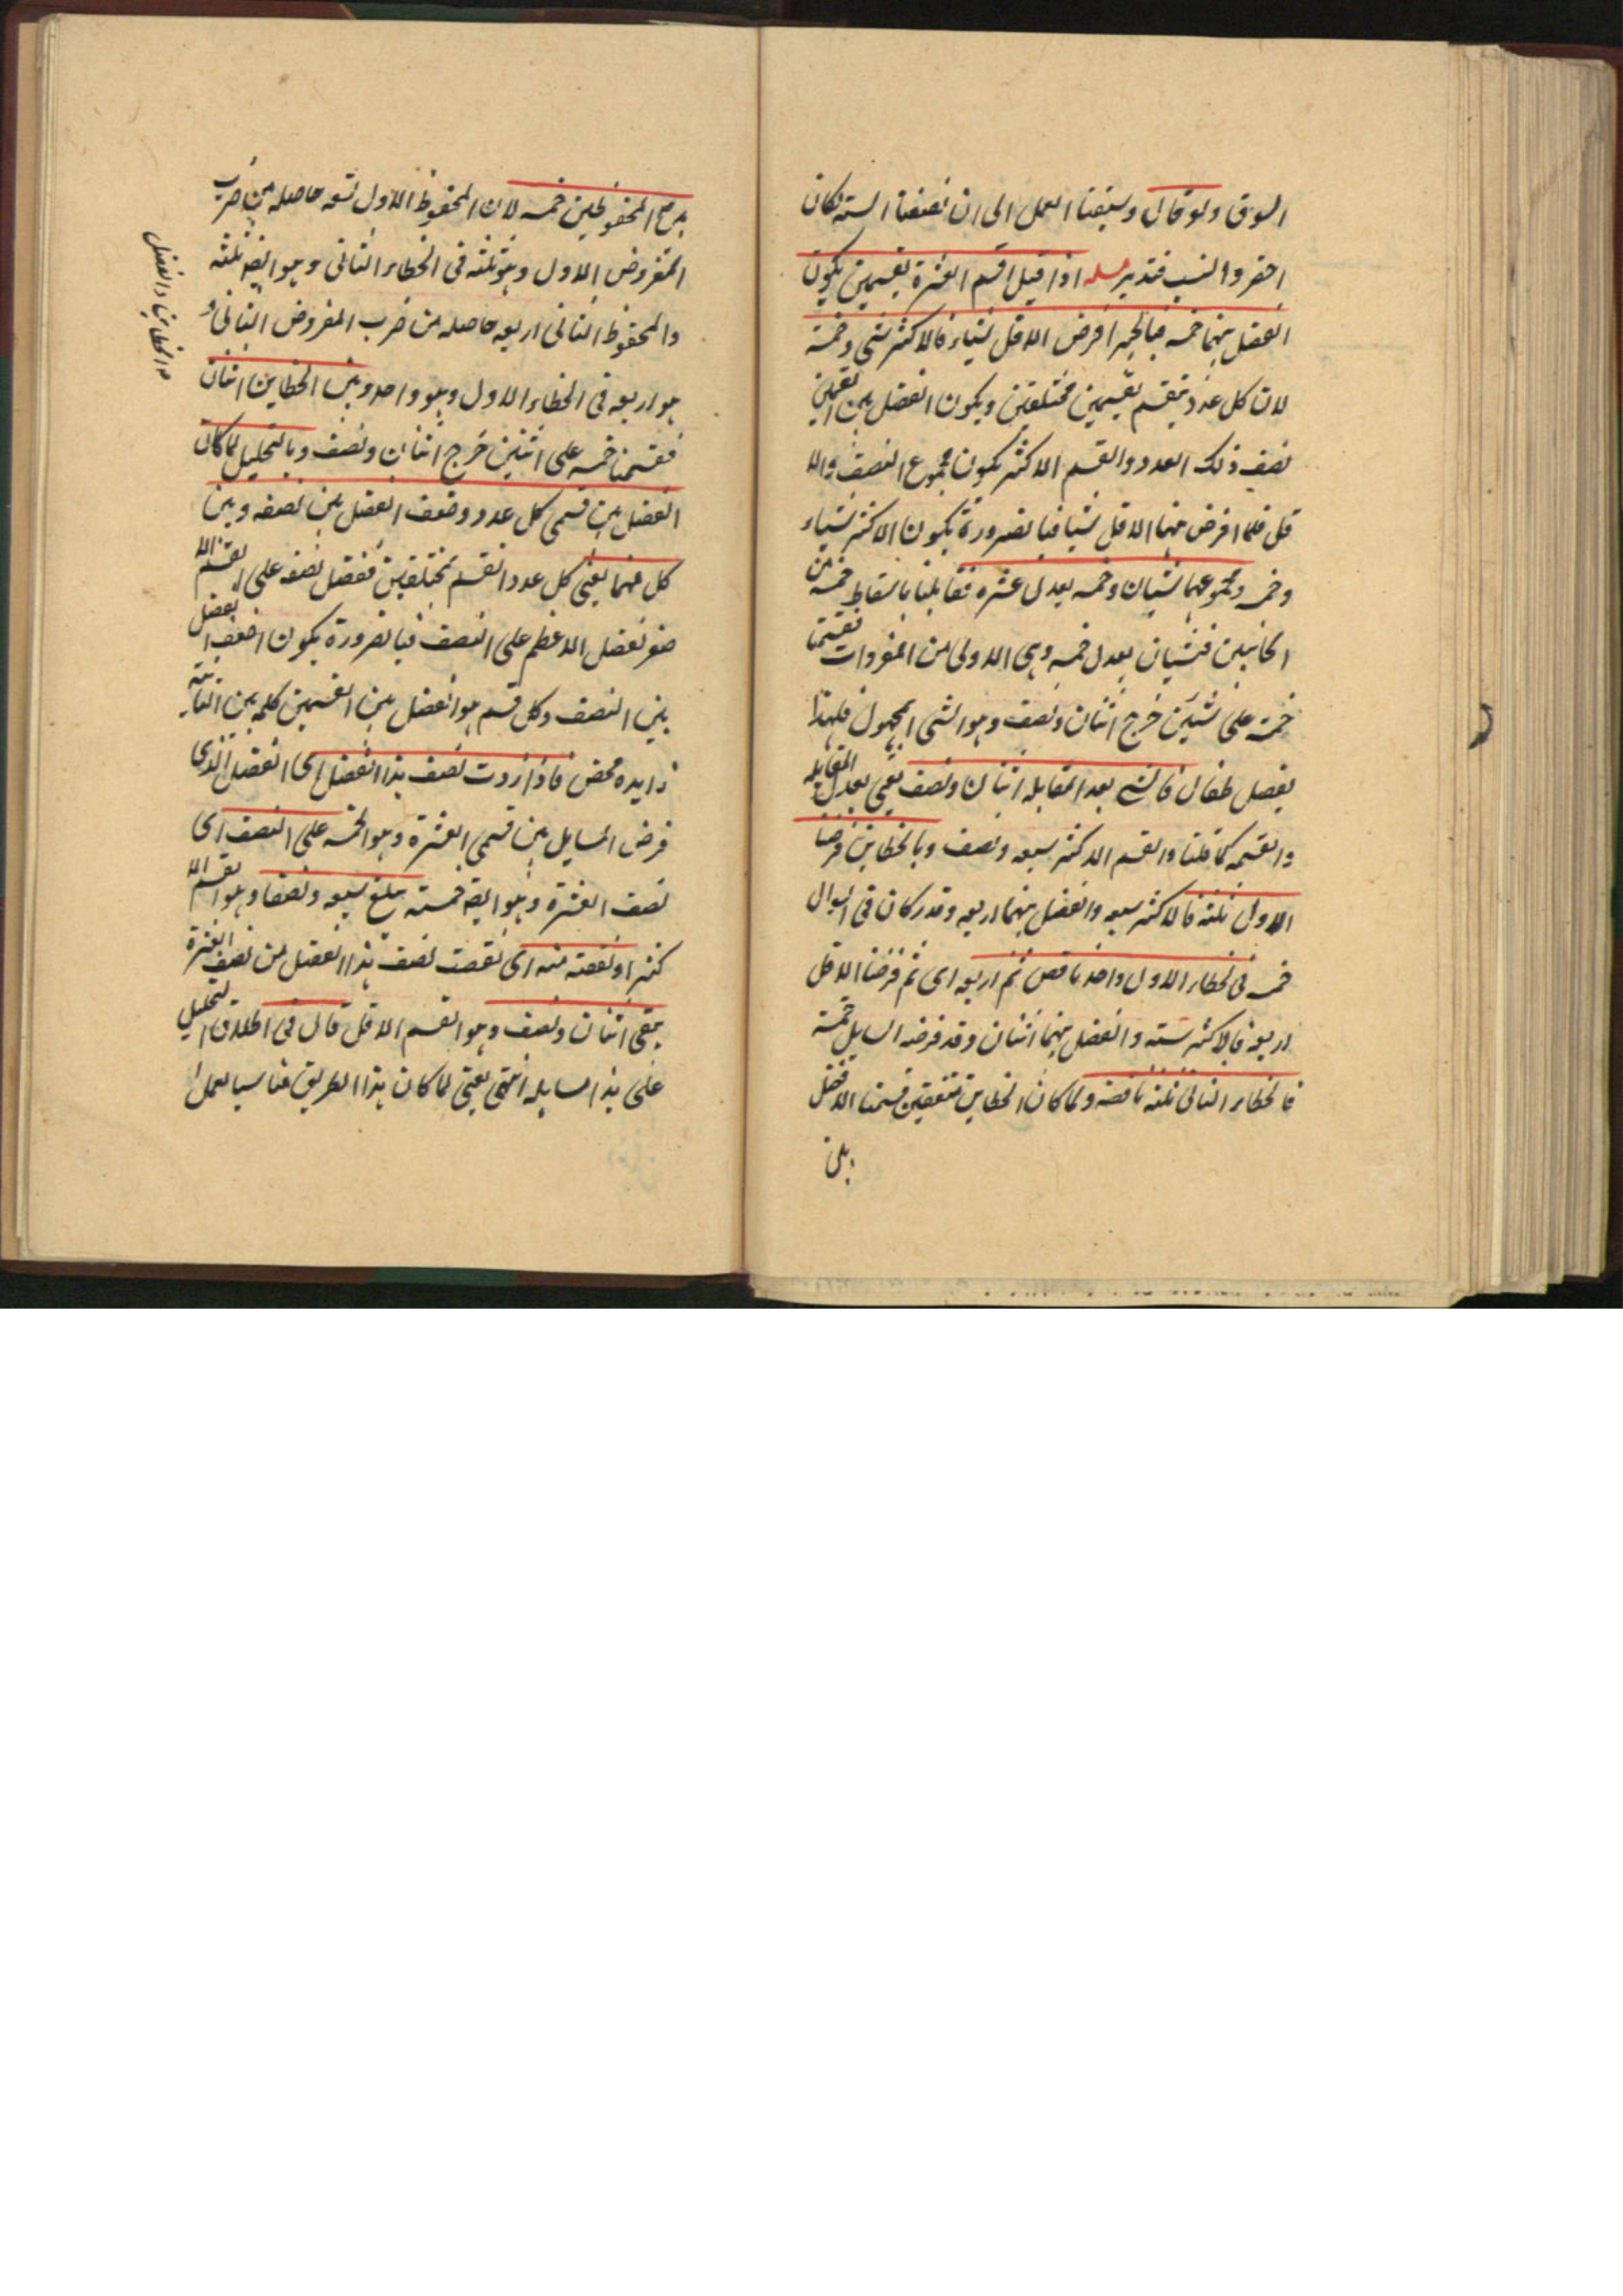 السوق ولو قال وسيقنا العمل الى ان نصفنا الستة لكان
احضر والنسب فتدبر مسله اذا قيل اقسم العشرة بقسمين يكون
الفضل بينهما خمسه فبالجبر افرض الاقل شياء فالاكثر شئ وخمسة
لان كل عدد ينقسم بقسمين مختلفين ويكون الفضل بين القسمين
نصف ذلك العدد والقسم الاكثر يكون مجموع النصف والا
قل فلما افرض منهما الاقل شيا فبالضرورة يكون الاكثر شياء
وخمسه ومجموعهما شيان وخمسه يعدل عشره فقابلنا باسقاط خمسة من
الجانبين فشيان يعدل خمسه وهى الاولى من المفردات فقسمنا
خمسة على شئين خرج اثنان ونصف وهو الشى المجهول فلهذا
بفصل فقال فالشئ بعد المقابله اثنان ونصف يعنى بعد المقابله
والقسمه كما قلنا والقسم الاكثر سبعه ونصف وبالخطاين فرضنا
الاول ثلثة فالاكثر سبعه والفضل بينهما اربعه وقد كان فى السوال
خمسه فى لخطاء الاول واحد ناقص ثم اربعه اى ثم فرضنا الاقل
اربعه فالاكثر سته والفضل بينهما اثنان وقد فرضه السايل خمسة
فالخطاء الثانى ثلثه ناقصه ولما كان الخطاين متفقين قسمنا الفضل
بين
بين المحفوظين خمسه لان المحفوظ الاول تسعه حاصله من ضرب
المفروض الاول وهو ثلثه فى الخطاء الثانى وهو ايضه ثلثه
والمحفوظ الثانى اربعه حاصله من ضرب المفروض الثانى و
هو اربعه فى الخطاء الاول وهو واحد وبين الخطاين اثنان
فقسمنا خمسه على اثنين خرج اثنان ونصف وبالتحليل لما كان
الفضل بين قسمى كل عدد وضعف الفضل بين نصفه وبين
كل منهما يعنى كل عدد انقسم بمختلفين ففضل نصفه على القسم الا
صغر لفضل الاعظم على النصف فبالضرورة يكون اضعف الفضل
بين النصف وكل قسم هو الفضل بين القسمين كلمه بين الثانية
زايده محض فاذا زدت نصف هذا الفضل اى الفضل الذى
فرض السايل بين قسمى العشرة وهو الخمسه على النصف اى
نصف العشرة وهو ايضه خمسته بلغ سبعه ونصفا وهو القسم الا
كثر او نقصته منه اى نقصت نصف هذا الفضل من نصف العشرة
بقى اثنان ونصف وهو القسم الاقل قال فى اطلاق التحليل
على هذا مسايله انتهى يعنى لما كان هذا الطريق مناسبا لعمل
الخطاين والفضل